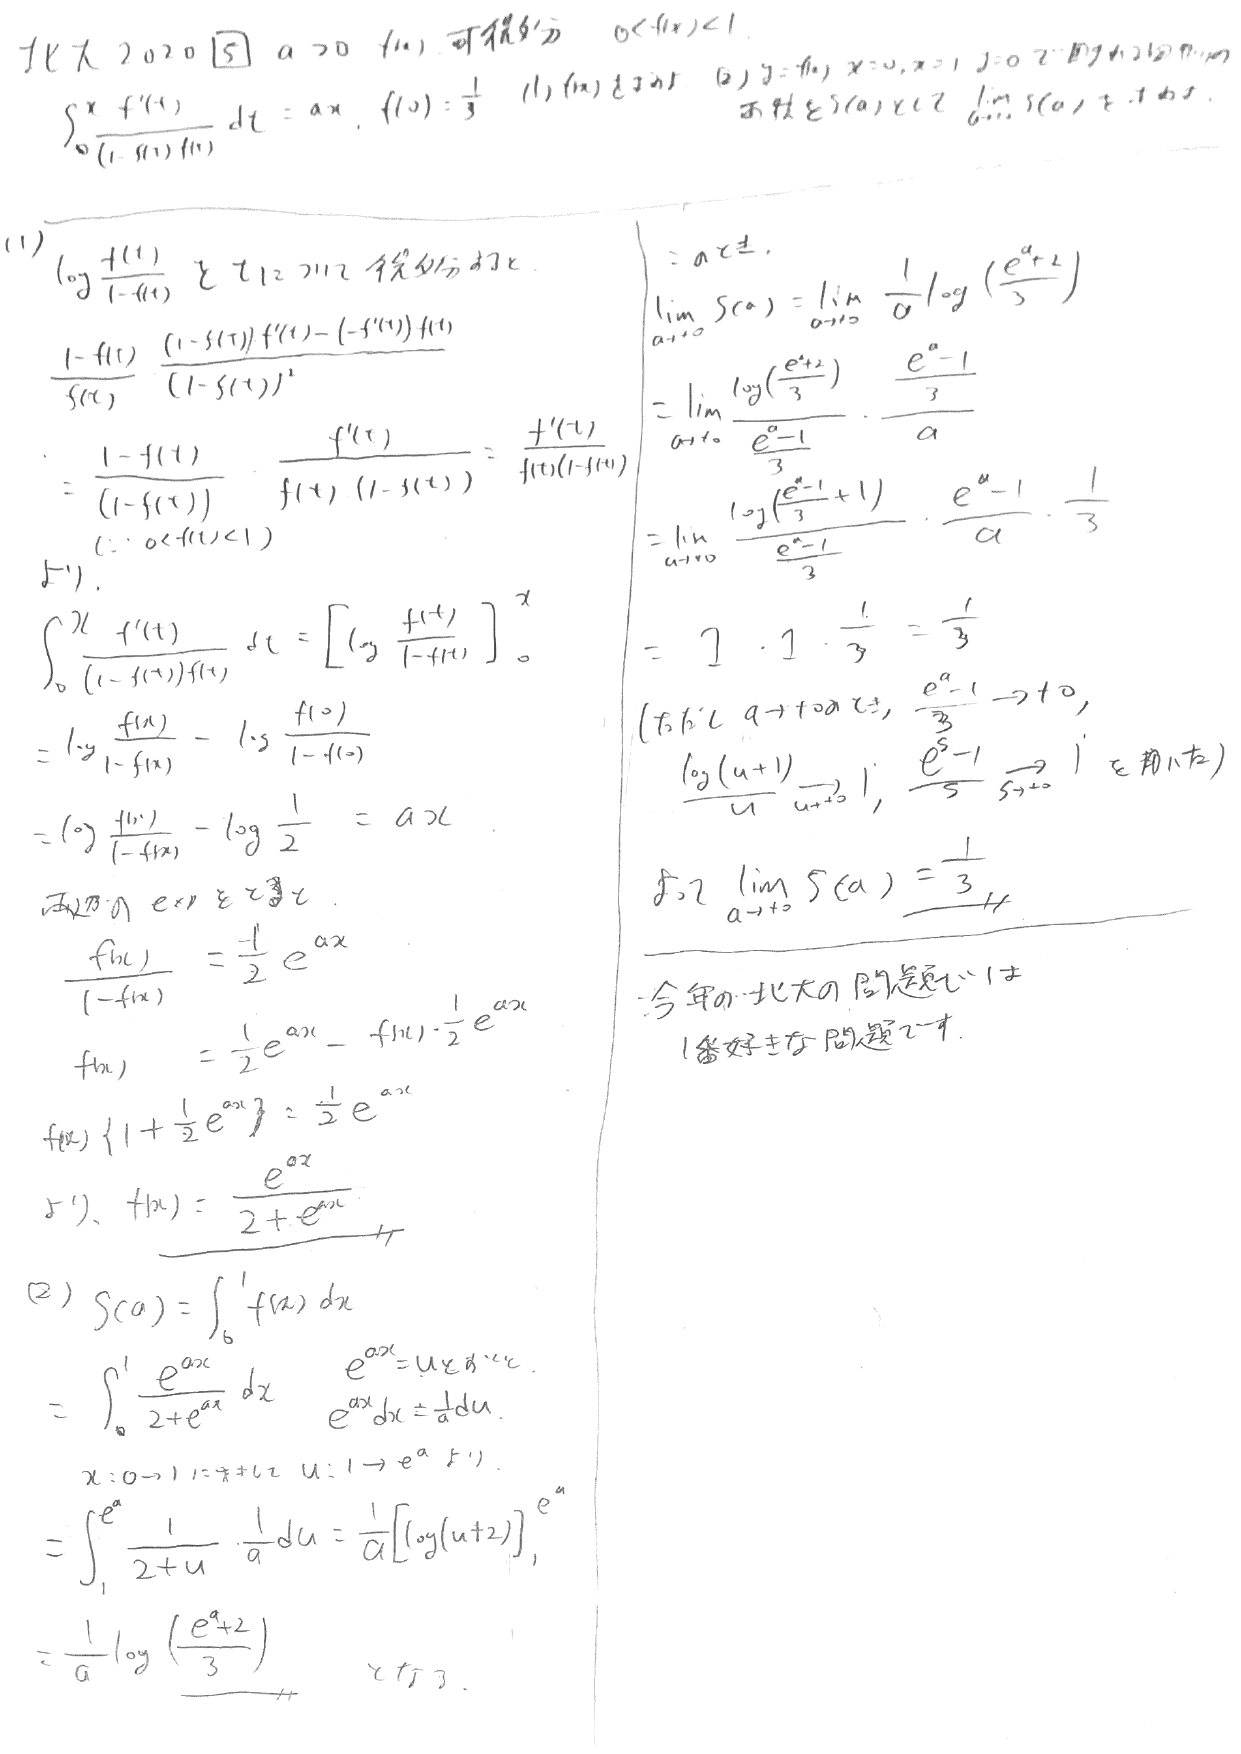 北大2020 [5] a>0 f(x) 可微分 0<f(x)<1
∫_0^x f'(t)/((1-f(t))f(t)) dt = ax, f(0)=1/3 (1) f(x)を求めよ (2) y=f(x) x=0, x=1 y=0で囲まれる図形の
面積をS(a)として lim_{a→+0} S(a)を求めよ.
(1)
log f(t)/(1-f(t)) をtについて微分すると
(1-f(t))/f(t) ((1-f(t))f'(t)-(-f'(t))f(t))/(1-f(t))^2
= (1-f(t))/(1-f(t)) · f'(t)/(f(t)(1-f(t))) = f'(t)/(f(t)(1-f(t)))
(∵ 0<f(t)<1)
より.
∫_0^x f'(t)/((1-f(t))f(t)) dt = [log f(t)/(1-f(t))]_0^x
= log f(x)/(1-f(x)) - log f(0)/(1-f(0))
= log f(x)/(1-f(x)) - log 1/2 = ax
両辺の exp をとると
f(x)/(1-f(x)) = 1/2 e^{ax}
f(x) = 1/2 e^{ax} - f(x)·1/2 e^{ax}
f(x){1+1/2 e^{ax}} = 1/2 e^{ax}
より、f(x) = e^{ax}/(2+e^{ax})
(2) S(a) = ∫_0^1 f(x) dx
= ∫_0^1 e^{ax}/(2+e^{ax}) dx e^{ax}=uとおくと.
e^{ax}dx = 1/a du.
x:0→1に対して u:1→e^a より
= ∫_1^{e^a} 1/(2+u) · 1/a du = 1/a [log(u+2)]_1^{e^a}
= 1/a log((e^a+2)/3) となる.
このとき.
lim_{a→+0} S(a) = lim_{a→+0} 1/a log((e^a+2)/3)
= lim_{a→+0} log((e^a+2)/3)/((e^a-1)/3) · ((e^a-1)/3)/a
= lim_{a→+0} log((e^a-1)/3+1)/((e^a-1)/3) · (e^a-1)/a · 1/3
= 1 · 1 · 1/3 = 1/3
(ただし a→+0のとき, (e^a-1)/3 → +0,
log(u+1)/u →_{u→+0} 1, (e^s-1)/s →_{s→+0} 1 を用いた)
よって lim_{a→+0} S(a) = 1/3
今年の北大の問題では
1番好きな問題です.